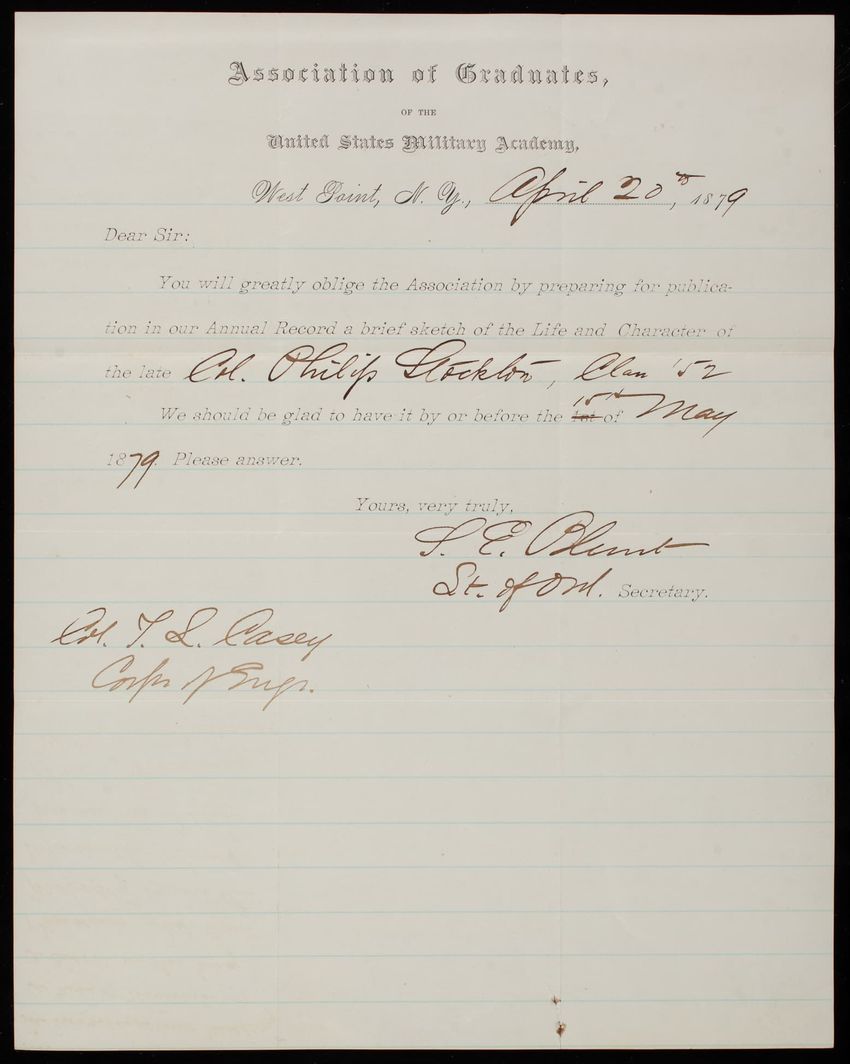 Association of Graduates,
OF THE
United States Military Academy,
West Point, N. Y., April 20th, 1879
Dear Sir:
You will greatly oblige the Association by preparing for publica-
tion in our Annual Record a brief sketch of the Life and Character of
the late Col. Philip Stockton, Class '52
15th
We should be glad to have it by or before the 1st of May
1879. Please answer.
Yours, very truly,
S. E. Blunt
Lt. of Ord. Secretary.
Col. T. L. Casey
Corps of Engr.